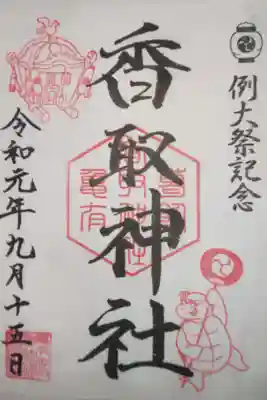 例大祭記念
香取神社
亀有
香取
神社
令和元年九月十五日